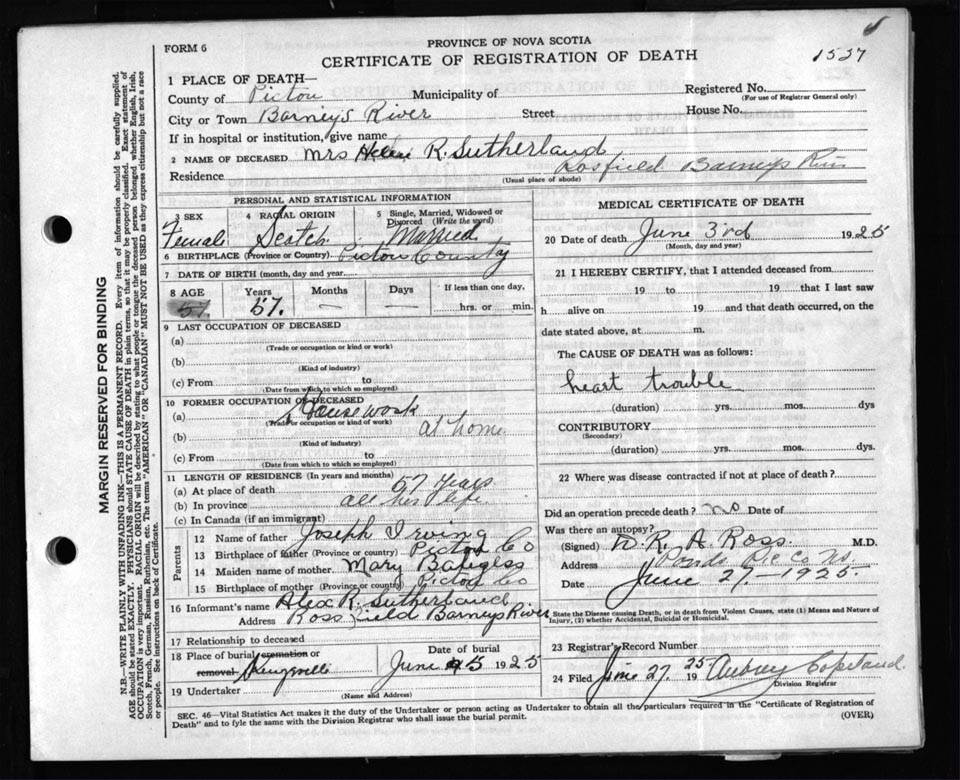 FORM 6
PROVINCE OF NOVA SCOTIA
CERTIFICATE OF REGISTRATION OF DEATH
1537
1 PLACE OF DEATH—
County of Pictou Municipality of Registered No.
(For use of Registrar General only)
City or Town Barneys River Street House No.
If in hospital or institution, give name
2 NAME OF DECEASED Mrs Helen R. Sutherland
Residence Rosfield Barneys River
(Usual place of abode)
PERSONAL AND STATISTICAL INFORMATION
3 SEX Female
4 RACIAL ORIGIN Scotch
5 Single, Married, Widowed or Divorced (Write the word) Married
6 BIRTHPLACE (Province or Country) Pictou County
7 DATE OF BIRTH (month, day and year)
8 AGE Years Months Days If less than one day,
57 57. — — hrs. or min.
9 LAST OCCUPATION OF DECEASED
(a)
(Trade or occupation or kind or work)
(b)
(Kind of industry)
(c) From to
(Date from which to which so employed)
10 FORMER OCCUPATION OF DECEASED
(a) Housework
(Trade or occupation or kind of work)
at home
(b)
(Kind of industry)
(c) From to
(Date from which to which so employed)
11 LENGTH OF RESIDENCE (In years and months)
(a) At place of death 57 years
(b) In province all her life
(c) In Canada (if an immigrant)
Parents
12 Name of father Joseph Irving
13 Birthplace of father (Province or country) Pictou Co
14 Maiden name of mother Mary
15 Birthplace of mother (Province or country) Pictou Co
16 Informant's name Alex R. Sutherland
Address Ross field Barneys River
17 Relationship to deceased
18 Place of burial cremation or removal Date of burial
June 5 1925
19 Undertaker
(Name and Address)
MEDICAL CERTIFICATE OF DEATH
20 Date of death June 3rd 1925
(Month, day and year)
21 I HEREBY CERTIFY, that I attended deceased from
19 to 19 that I last saw
h alive on 19 and that death occurred, on the
date stated above, at m.
The CAUSE OF DEATH was as follows:
heart trouble
(duration) yrs. mos. dys
CONTRIBUTORY
(Secondary)
(duration) yrs. mos. dys.
22 Where was disease contracted if not at place of death?
Did an operation precede death? no Date of
Was there an autopsy?
(Signed) A. Ross. M.D.
Address
Date June 27—1925.
State the Disease causing Death, or in death from Violent Causes, state (1) Means and Nature of
Injury, (2) whether Accidental, Suicidal or Homicidal.
23 Registrar's Record Number
24 Filed June 27. 1925 Aubrey Copeland.
Division Registrar
SEC. 46—Vital Statistics Act makes it the duty of the Undertaker or person acting as Undertaker to obtain all the particulars required in the "Certificate of Registration of
Death" and to fyle the same with the Division Registrar who shall issue the burial permit.
(OVER)
MARGIN RESERVED FOR BINDING
N.B.—WRITE PLAINLY WITH UNFADING INK—THIS IS A PERMANENT RECORD. Every item of information should be carefully supplied.
AGE should be stated EXACTLY. PHYSICIANS should STATE CAUSE OF DEATH in plain terms, so that it may be properly classified. Exact statement of
OCCUPATION is very important. RACIAL ORIGIN will be described by stating to what people or tongue the deceased person belonged whether English, Irish,
Scotch, French, German, Russian, Ruthenian, etc. The terms "AMERICAN" OR "CANADIAN" MUST NOT BE USED as they express citizenship but not a race
or people. See instructions on back of Certificate.